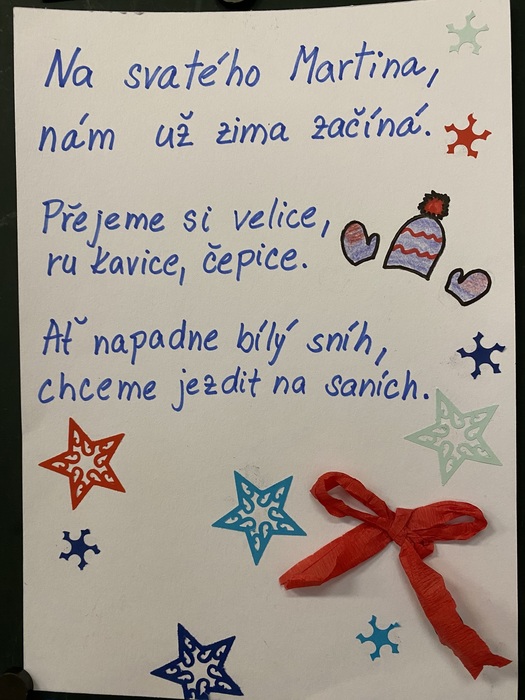 Na svatého Martina,
nám už zima začíná.
Přejeme si velice,
ru kavice, čepice.
Ať napadne bílý sníh,
chceme jezdit na saních.